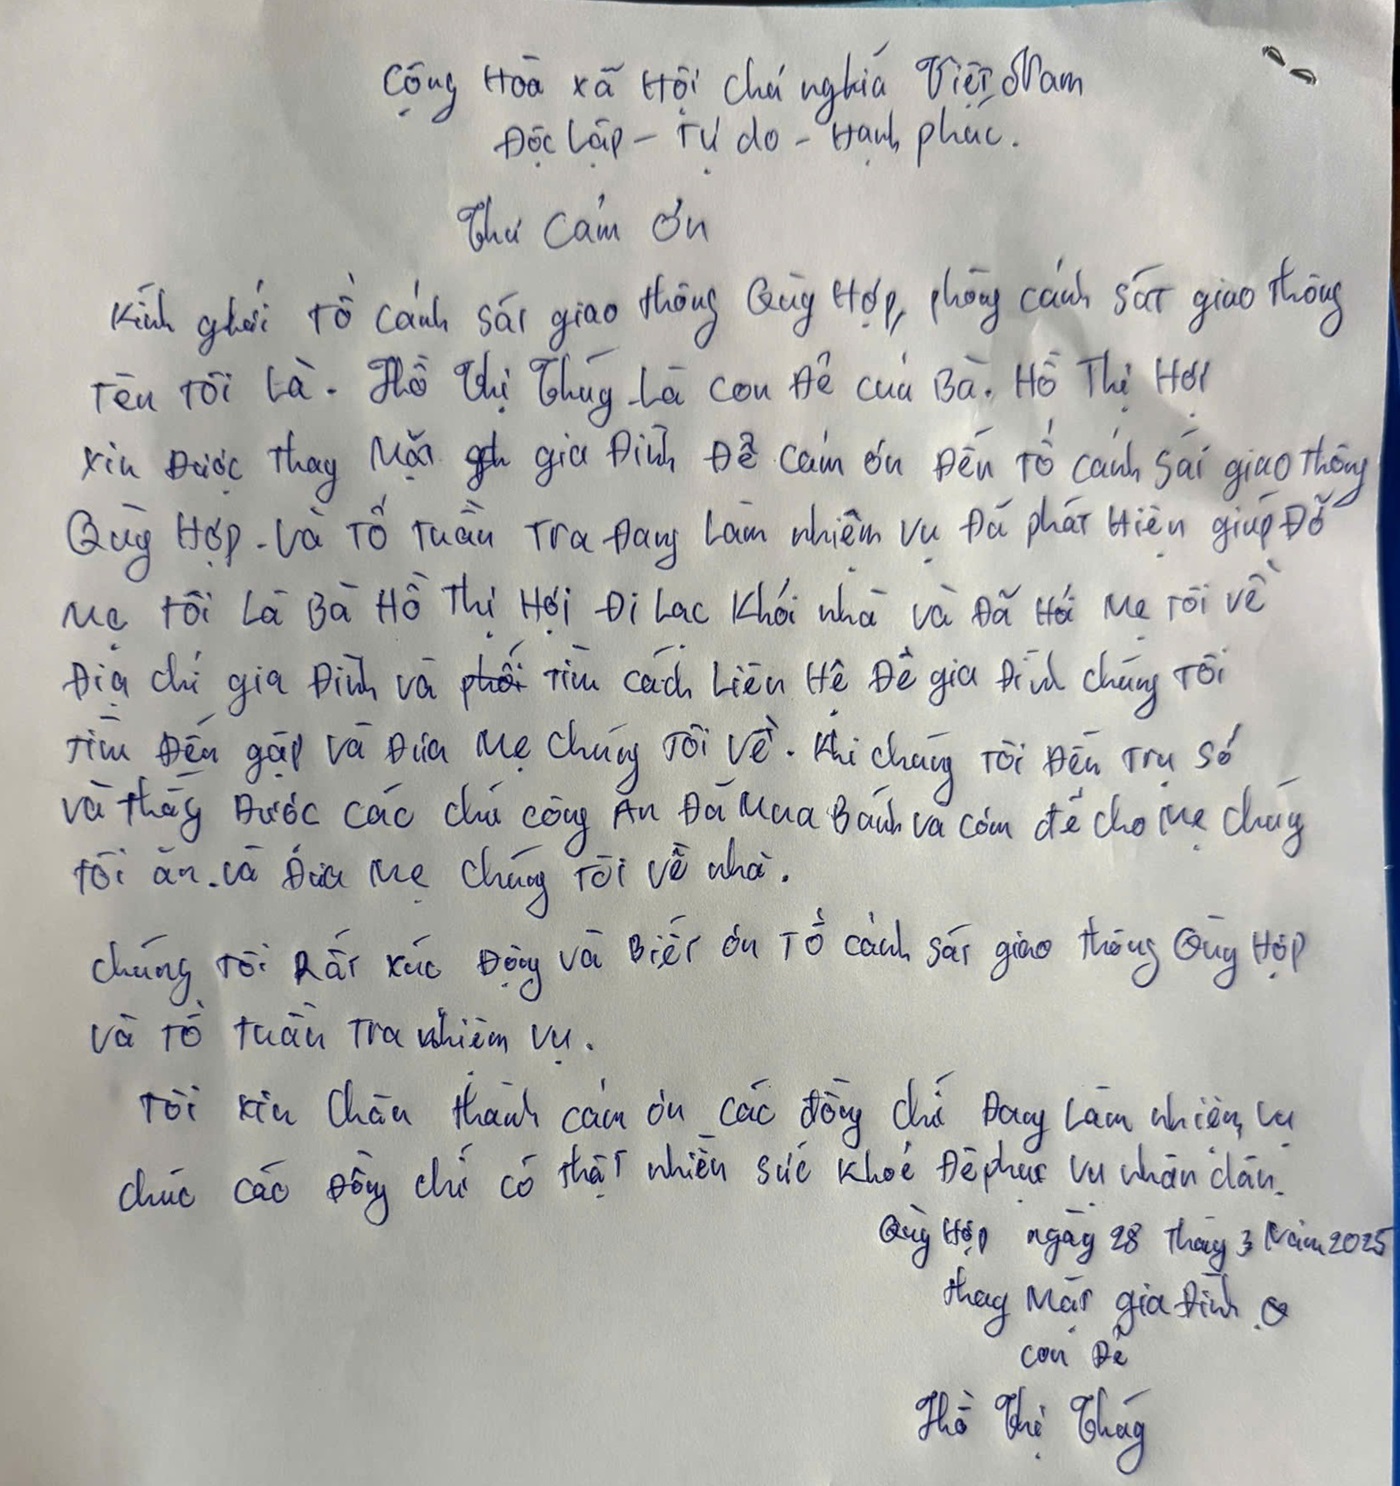 Cộng Hòa xã Hội chủ nghĩa Việt Nam
Độc lập - Tự do - Hạnh phúc.
Thư cảm ơn
Kính gửi Tổ cảnh sát giao thông Quỳ Hợp, phòng cảnh sát giao thông
Tên Tôi Là. Hồ Thị Thúy Là con Đẻ của Bà. Hồ Thị Hợi
xin Được thay Mặt gia Đình Để cảm ơn Đến Tổ cảnh sát giao thông
Quỳ Hợp. Và Tổ Tuần Tra Đang Làm nhiệm vụ Đã phát Hiện giúp Đỡ
Mẹ Tôi Là Bà Hồ Thị Hợi Đi Lạc khỏi nhà và Đã Hỏi Mẹ Tôi về
Địa chỉ gia Đình và Tìm cách Liên Hệ Để gia Đình chúng Tôi
Tìm Đến gặp Và Đưa Mẹ chúng Tôi Về. Khi chúng Tôi Đến Trụ Sở
và thấy Được các chú công An Đã Mua Bánh và cơm để cho Mẹ chúng
Tôi ăn. và Đưa Mẹ chúng Tôi Về nhà.
chúng Tôi Rất xúc Động và Biết ơn Tổ cảnh sát giao thông Quỳ Hợp
và Tổ Tuần Tra nhiệm vụ.
Tôi xin Chân thành cảm ơn các đồng chí Đang Làm nhiệm vụ
chúc các Đồng chí có thật nhiều sức khoẻ Để phục vụ nhân dân.
Quỳ Hợp ngày 28 Tháng 3 Năm 2025
Thay Mặt gia Đình
con Đẻ
Hồ Thị Thúy